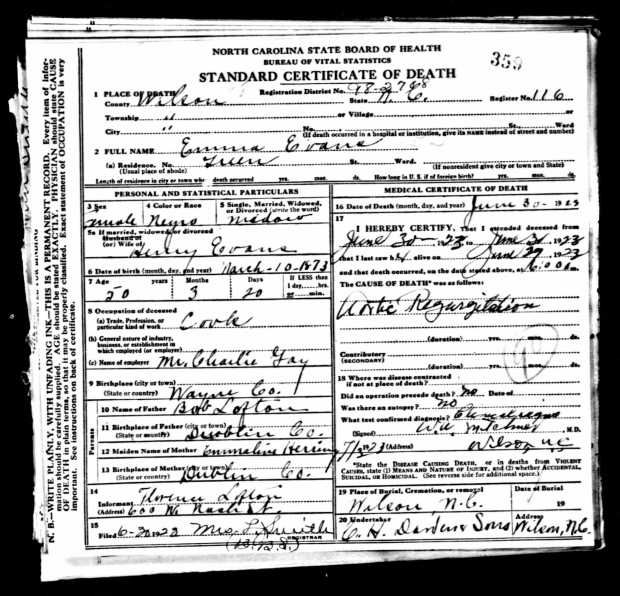 NORTH CAROLINA STATE BOARD OF HEALTH
BUREAU OF VITAL STATISTICS
STANDARD CERTIFICATE OF DEATH
359
N. B.—WRITE PLAINLY, WITH UNFADING INK—THIS IS A PERMANENT RECORD. Every item of information should be carefully supplied. AGE should be stated EXACTLY. PHYSICIAN should state CAUSE OF DEATH in plain terms, so that it may be properly classified. Exact statement of OCCUPATION is very important. See instructions on back of certificate.
1 PLACE OF DEATH Registration District No. 98-
County Wilson State N. C. Register No. 116
Township " or Village
City " No. St., Ward
(If death occurred in a hospital or institution, give its name instead of street and number)
2 FULL NAME Emma Evans
(a) Residence. No. Green St. Ward.
(Usual place of abode) (If nonresident give city or town and State)
Length of residence in city or town where death occurred yrs. mos. ds. How long in U. S. if of foreign birth? yrs. mos. ds.
PERSONAL AND STATISTICAL PARTICULARS
3 Sex
4 Color or Race
5 Single, Married, Widowed, or Divorced (write the word)
female Negro Widow
5a If married, widowed or divorced
Husband of
(or) Wife of Henry Evans
6 Date of birth (month, day, and year) March-10-1873
7 Age years Months Days If LESS than
1 day, hrs.
50 3 20 or min.
8 Occupation of deceased
(a) Trade, Profession, or
particular kind of work Cook
(b) General nature of industry,
business, or establishment in
which employed (or employer)
(c) Name of employer Mr. Charlie Gay
9 Birthplace (city or town)
(State or country) Wayne Co.
Parents
10 Name of Father Bob Lofton
11 Birthplace of Father (city or town)
(State or country) Dublin Co.
12 Maiden Name of Mother Emmaline Herring
13 Birthplace of Mother (city or town)
(State or country) Dublin Co.
14
Informant Florence Lofton
(Address) 600 W. Nash St.
15
Filed 6-30 1923 Mrs.
REGISTRAR
MEDICAL CERTIFICATE OF DEATH
16 Date of Death (month, day, and year) June 30- 1923
17
I HEREBY CERTIFY, That I attended deceased from
June 30- 1923 to June 30 1923
that I last saw her alive on June 29 1923
and that death occurred, on the date stated above, at m.
The CAUSE OF DEATH* was as follows:
Aortic Regurgitation
(duration) yrs. mos. ds.
Contributory
(SECONDARY)
(duration) yrs. mos. ds.
18 Where was disease contracted
if not at place of death?
Did an operation precede death? no Date of
Was there an autopsy? no
What test confirmed diagnosis? Clinical signs
(Signed) M.D.
1923 (Address) Wilson NC
*State the DISEASE CAUSING DEATH, or in deaths from VIOLENT CAUSES, state (1) MEANS AND NATURE OF INJURY, and (2) whether ACCIDENTAL, SUICIDAL, OR HOMICIDAL. (See reverse side for additional space.)
19 Place of Burial, Cremation, or removal Date of Burial
Wilson, N.C. 19
20 Undertaker Address
C. H. Darden & Sons Wilson, N.C.